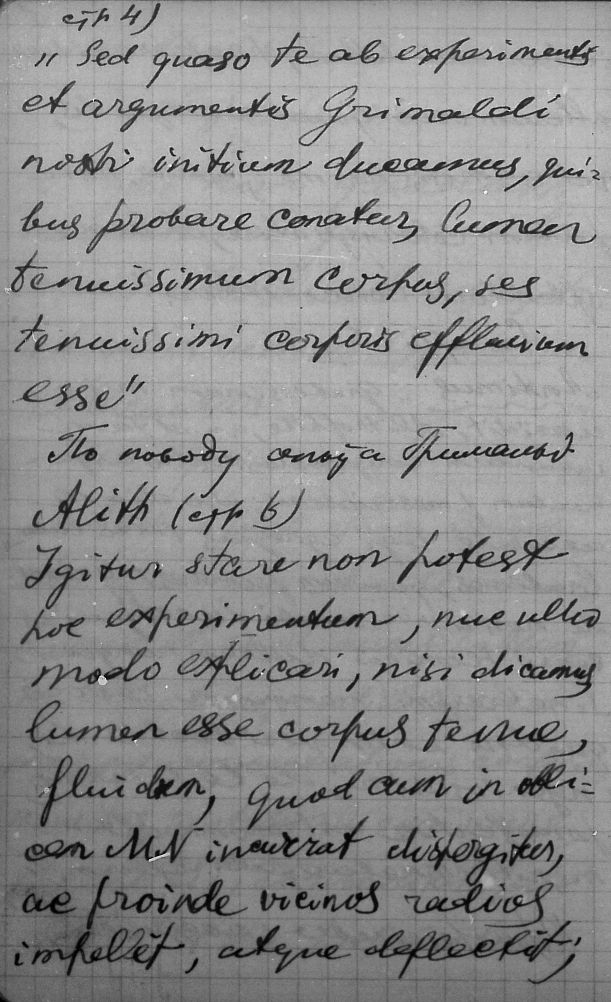 стр 4)
„Sed quaso te ab experimentis
et argumentis Grimaldi
nostri initium ducamus, qui=
bus probare conatur, lumen
tenuissimum corpus, ses
tenuissimi corporis effluvium
esse"
По поводу опыта Гримальд
Alith (стр 6)
Igitur stare non potest
hoc experimentum, nue ullo
modo explicari, nisi dicamus
lumen esse corpus tenue,
fluidum, quod cum in obi=
cem MN incurrat dispergitur,
ac proinde vicinos radios
impellit, atque deflectit;